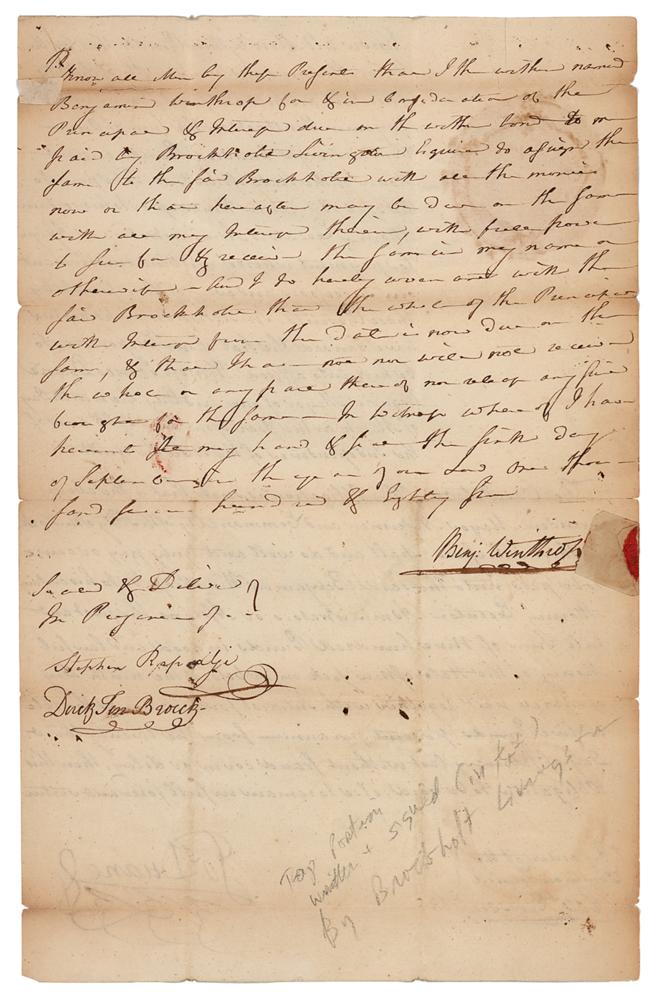 Know all Men by these Presents that I the within named
Benjamin Winthrop for & in Consideration of the
Principal & Interest due on the within bond to me
paid by Brockholst Livingston Esquire do assign the
same to the said Brockholst with all the monies
now or that hereafter may be due on the same
with all my Interest therein, with full power
to sue for & receive the same in my name or
otherwise – And I do hereby covenant with the
said Brockholst that the whole of the Principal
with Interest from the Date is now due on the
same, & that I have not nor will not receive
the whole or any part thereof nor release any suit
brought for the same – In Witness whereof I have
hereunto set my hand & seal the day
of September in the year of our Lord One thou-
sand seven hundred & Eighty
Benj: Winthrop
Sealed & Deliver
In Presence of
Stephen Rapalje
Dirck Ten Broeck
Top Portion
written & signed (in text)
By Brockholst Livingston
Js Duane